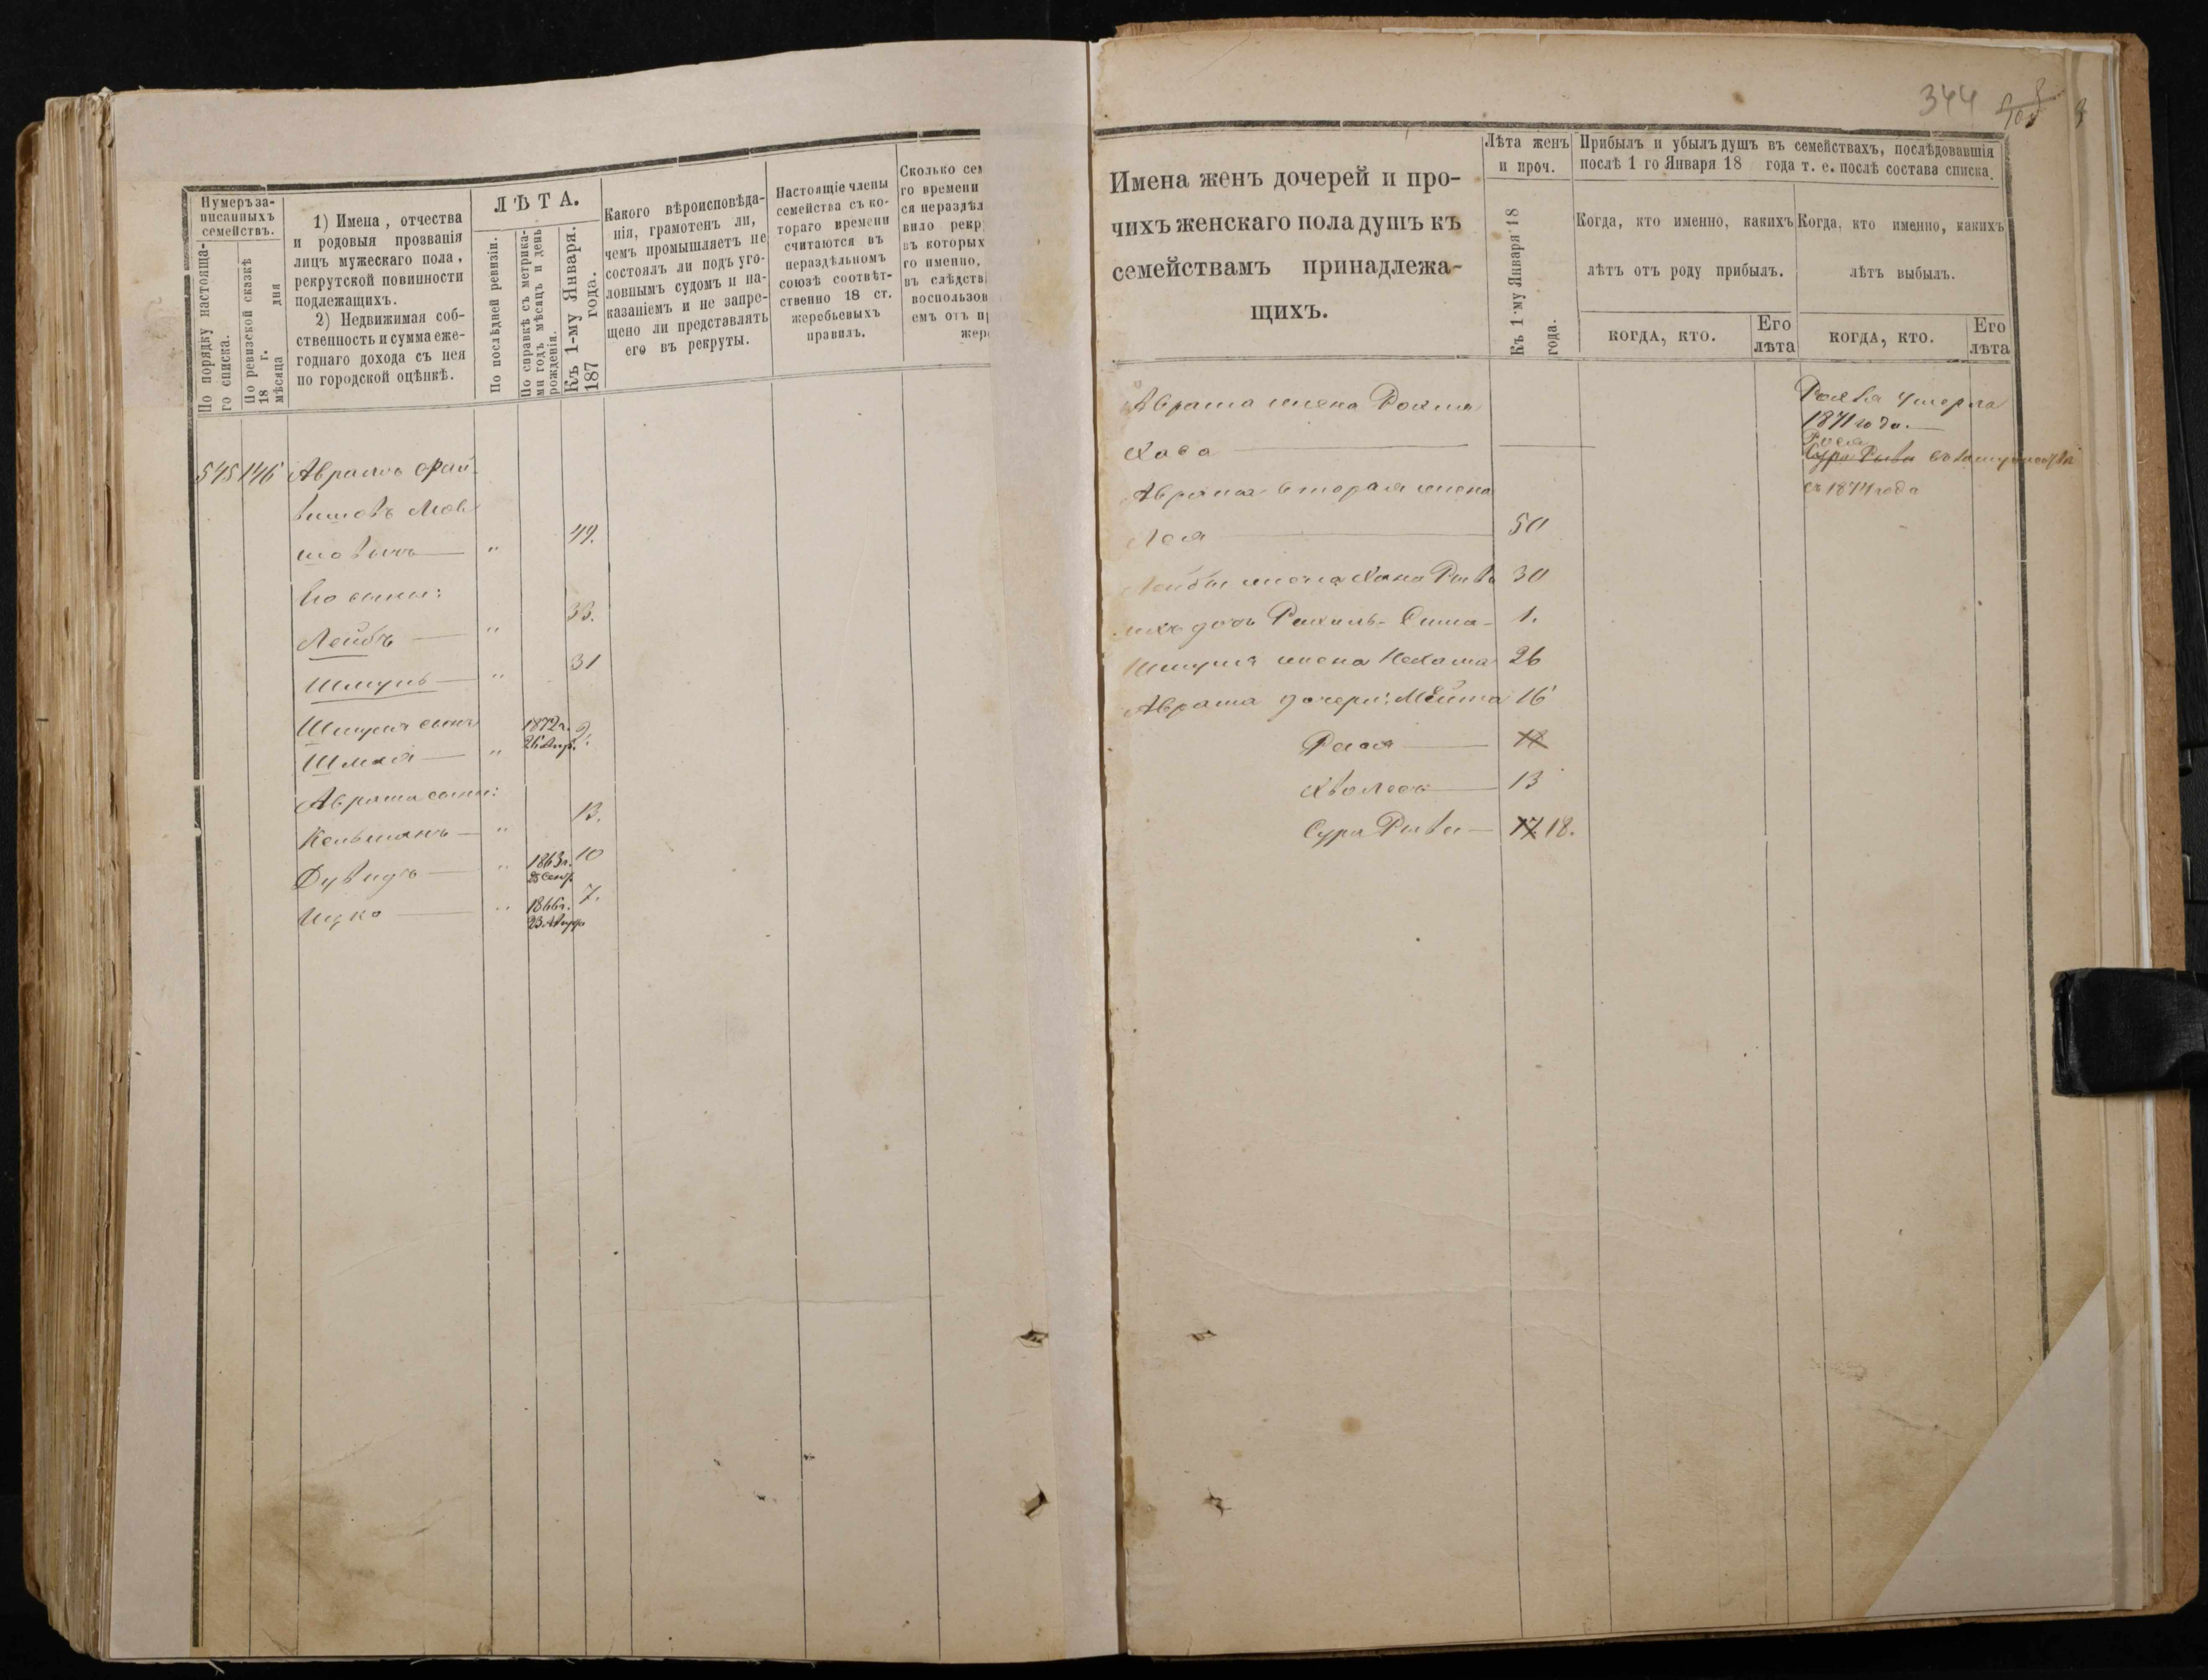 Нумеръ за-
писанныхъ
семействъ.
По порядку настояща-
го списка.
По ревизской сказкѣ
18 г.
мѣсяца дня
1) Имена, отчества
и родовыя прозванія
лицъ мужескаго пола,
рекрутской повинности
подлежащихъ.
2) Недвижимая соб-
ственность и сумма еже-
годнаго дохода съ нея
по городской оцѣнкѣ.
ЛѢТА.
По послѣдней ревизіи.
По справкѣ съ метрика-
ми годъ мѣсяцъ и день
рожденія.
Къ 1-му Января.
187 года.
Какого вѣроисповѣда-
нія, грамотенъ ли,
чемъ промышляетъ не
состоялъ ли подъ уго-
ловнымъ судомъ и на-
казаніемъ и не запре-
щено ли представлять
его въ рекруты.
Настоящіе члены
семейства съ ко-
тораго времени
считаются въ
нераздѣльномъ
союзѣ соотвѣт-
ственно 18 ст.
жеребьевыхъ
правилъ.
Сколько сем
го времени
ся нераздѣл
вило рекр
въ которых
го именно,
въ слѣдств
воспользов
емъ отъ п
жер
545 146 Абрамъ
49.
Его сыны:
Лейбъ 33.
Шмуль 31
Шмуля сынъ 1872г. 2.
26 Апр.
Абрама сыны:
Кельманъ 13.
Дувидъ 1863г. 10
28 Сент
Ицко 1866г. 7.
23
344
Имена женъ дочерей и про-
чихъ женскаго пола душъ къ
семействамъ принадлежа-
щихъ.
Лѣта женъ
и проч.
Къ 1-му Января 18
года.
Прибылъ и убылъ душъ въ семействахъ, послѣдовавшія
послѣ 1 го Января 18 года т. е. послѣ состава списка.
Когда, кто именно, какихъ
лѣтъ отъ роду прибылъ.
Когда, кто именно, какихъ
лѣтъ выбылъ.
когда, кто.
Его
лѣта
когда, кто.
Его
лѣта
Абрама жена
Хаса
Абрама вторая жена
Лея 50
Лейбы жена Хана Рывка 30
ихъ дочь Рахиль-Сима 1.
Шмуля жена Нехама 26
Абрама дочери: Мейта 16
Рося
13
Сура Рывка 17. 18.
умерла
1871 года.
Рося
Сура Рывка въ замужествѣ
съ 1874 года